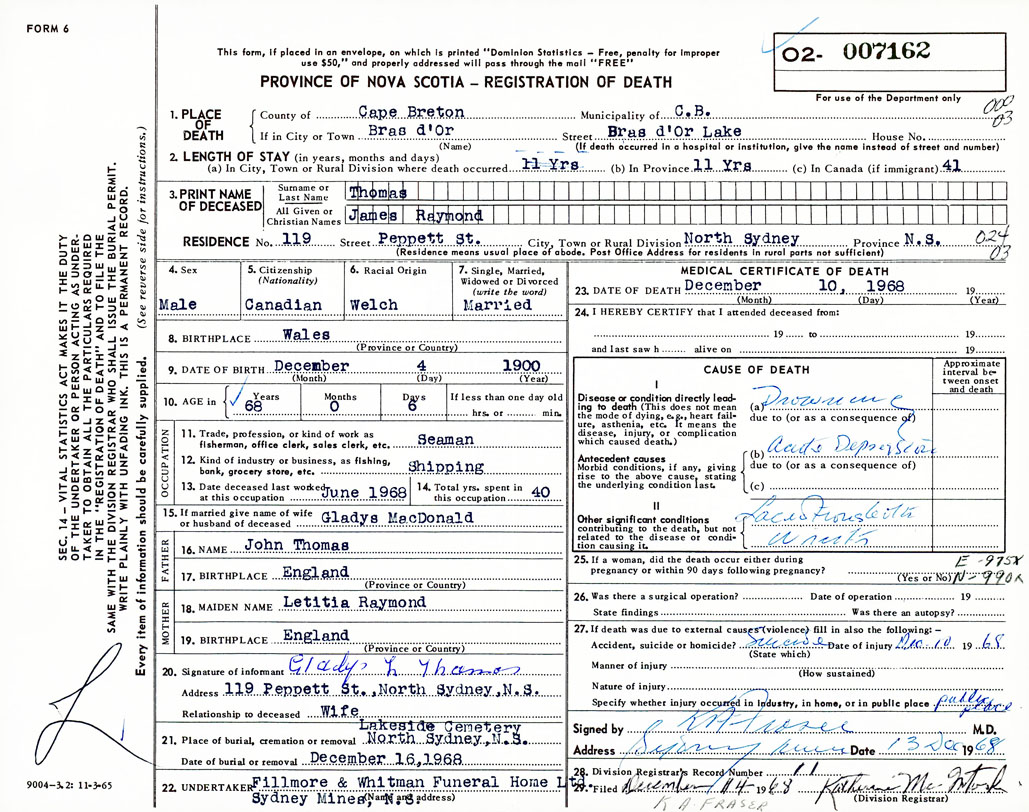 FORM 6
This form, if placed in an envelope, on which is printed "Dominion Statistics – Free, penalty for improper
use $50," and properly addressed will pass through the mail "FREE"
PROVINCE OF NOVA SCOTIA – REGISTRATION OF DEATH
02- 007162
For use of the Department only
000
03
1. PLACE OF DEATH
County of Cape Breton Municipality of C.B.
If in City or Town Bras d'Or Street Bras d'Or Lake House No.
(Name) (If death occurred in a hospital or institution, give the name instead of street and number)
2. LENGTH OF STAY (in years, months and days)
(a) In City, Town or Rural Division where death occurred 11 Yrs (b) In Province 11 Yrs (c) In Canada (if immigrant) 41
3. PRINT NAME OF DECEASED
Surname or Last Name Thomas
All Given or Christian Names James Raymond
RESIDENCE No. 119 Street Peppett St. City, Town or Rural Division North Sydney Province N.S. 024
03
(Residence means usual place of abode. Post Office Address for residents in rural parts not sufficient)
4. Sex
Male
5. Citizenship (Nationality)
Canadian
6. Racial Origin
Welch
7. Single, Married, Widowed or Divorced (write the word)
Married
8. BIRTHPLACE Wales
(Province or Country)
9. DATE OF BIRTH December 4 1900
(Month) (Day) (Year)
10. AGE in Years 68 Months 0 Days 6 If less than one day old
hrs. or min.
OCCUPATION
11. Trade, profession, or kind of work as
fisherman, office clerk, sales clerk, etc. Seaman
12. Kind of industry or business, as fishing,
bank, grocery store, etc. Shipping
13. Date deceased last worked
at this occupation June 1968
14. Total yrs. spent in
this occupation 40
15. If married give name of wife
or husband of deceased Gladys MacDonald
FATHER
16. NAME John Thomas
17. BIRTHPLACE England
(Province or Country)
MOTHER
18. MAIDEN NAME Letitia Raymond
19. BIRTHPLACE England
(Province or Country)
20. Signature of informant Gladys L Thomas
Address 119 Peppett St.,North Sydney,N.S.
Relationship to deceased Wife
Lakeside Cemetery
21. Place of burial, cremation or removal North Sydney,N.S.
Date of burial or removal December 16,1968
22. UNDERTAKER Fillmore & Whitman Funeral Home Ltd.
Sydney Mines, N.S.
(Name and address)
MEDICAL CERTIFICATE OF DEATH
23. DATE OF DEATH December 10, 1968 19
(Month) (Day) (Year)
24. I HEREBY CERTIFY that I attended deceased from:
19 to 19
and last saw h alive on 19
CAUSE OF DEATH
Approximate interval between onset and death
I
Disease or condition directly lead-
ing to death (This does not mean
the mode of dying, e.g., heart fail-
ure, asthenia, etc. It means the
disease, injury, or complication
which caused death.)
(a) Drowning
due to (or as a consequence of)
Antecedent causes
Morbid conditions, if any, giving
rise to the above cause, stating
the underlying condition last.
(b) Acute Depression
due to (or as a consequence of)
(c)
II
Other significant conditions
contributing to the death, but not
related to the disease or condi-
tion causing it.
Lacerations both
wrists
25. If a woman, did the death occur either during
pregnancy or within 90 days following pregnancy?
(Yes or No)
E -975X
N-990X
26. Was there a surgical operation? Date of operation 19
State findings Was there an autopsy?
27. If death was due to external causes (violence) fill in also the following: –
Accident, suicide or homicide? Suicide Date of injury Dec 10 1968
(State which)
Manner of injury
(How sustained)
Nature of injury
Specify whether injury occurred in Industry, in home, or in public place public place
Signed by M.D.
Address Sydney Mines Date 13 Dec 1968
28. Division Registrar's Record Number 11
29. Filed December 14 1968 Katherine McIntosh
(Division Registrar)
K A FRASER
SEC. 14 – VITAL STATISTICS ACT MAKES IT THE DUTY
OF THE UNDERTAKER OR PERSON ACTING AS UNDER-
TAKER TO OBTAIN ALL THE PARTICULARS REQUIRED
IN THE "REGISTRATION OF DEATH" AND TO FILE THE
SAME WITH THE DIVISION REGISTRAR WHO SHALL ISSUE THE BURIAL PERMIT.
WRITE PLAINLY WITH UNFADING INK. THIS IS A PERMANENT RECORD.
Every item of information should be carefully supplied. (See reverse side for instructions.)
9004-3.2: 11-3-65